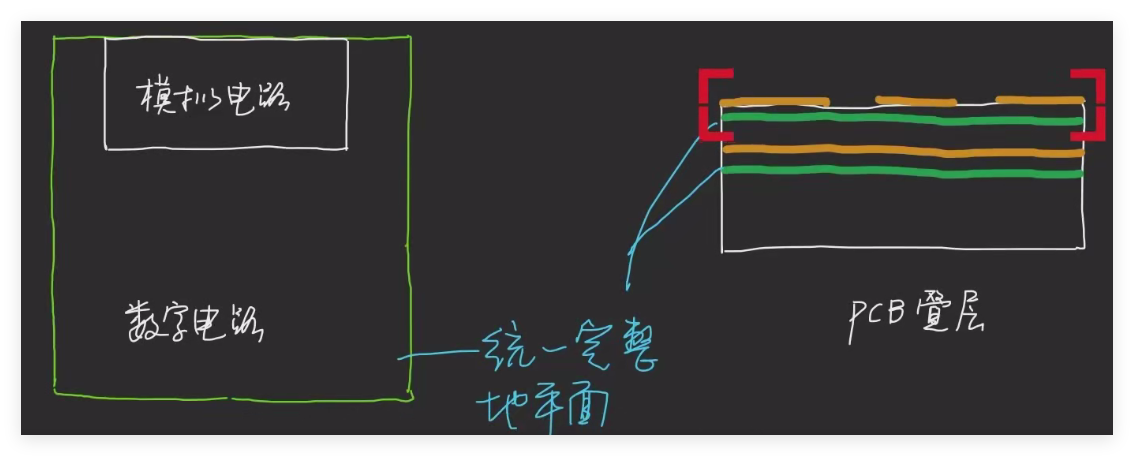 模拟电路
数字电路
统一完整
地平面
PCB叠层